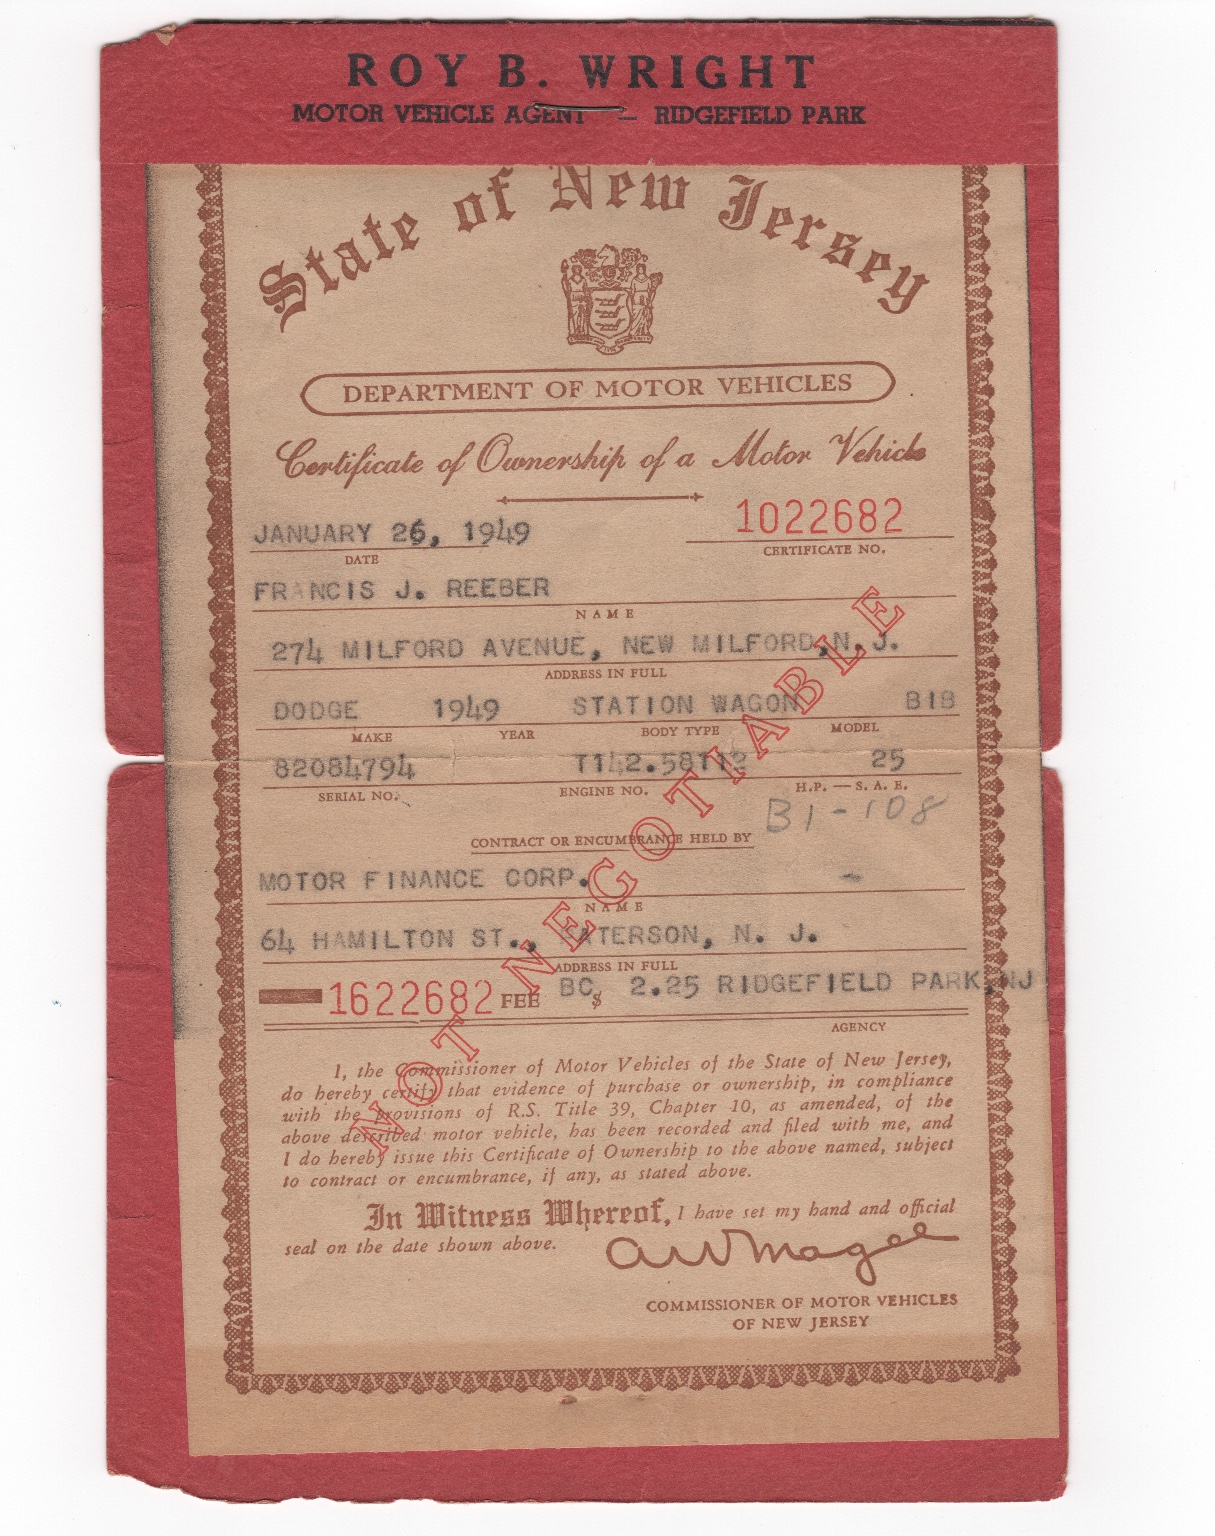 ROY B. WRIGHT
MOTOR VEHICLE AGENT — RIDGEFIELD PARK
State of New Jersey
DEPARTMENT OF MOTOR VEHICLES
Certificate of Ownership of a Motor Vehicle
JANUARY 26, 1949 1022682
DATE CERTIFICATE NO.
FRANCIS J. REEBER
NAME
274 MILFORD AVENUE, NEW MILFORD, N. J.
ADDRESS IN FULL
DODGE 1949 STATION WAGON B1B
MAKE YEAR BODY TYPE MODEL
82084794 T142.58112 25
SERIAL NO. ENGINE NO. H.P. — S. A. E.
B1-108
CONTRACT OR ENCUMBRANCE HELD BY
MOTOR FINANCE CORP. -
NAME
64 HAMILTON ST., PATERSON, N. J.
ADDRESS IN FULL
1622682 FEE BC $ 2.25 RIDGEFIELD PARK, NJ
AGENCY
NOT NEGOTIABLE
I, the Commissioner of Motor Vehicles of the State of New Jersey,
do hereby certify that evidence of purchase or ownership, in compliance
with the provisions of R.S. Title 39, Chapter 10, as amended, of the
above described motor vehicle, has been recorded and filed with me, and
I do hereby issue this Certificate of Ownership to the above named, subject
to contract or encumbrance, if any, as stated above.
In Witness Whereof, I have set my hand and official
seal on the date shown above. AW Magee
COMMISSIONER OF MOTOR VEHICLES
OF NEW JERSEY